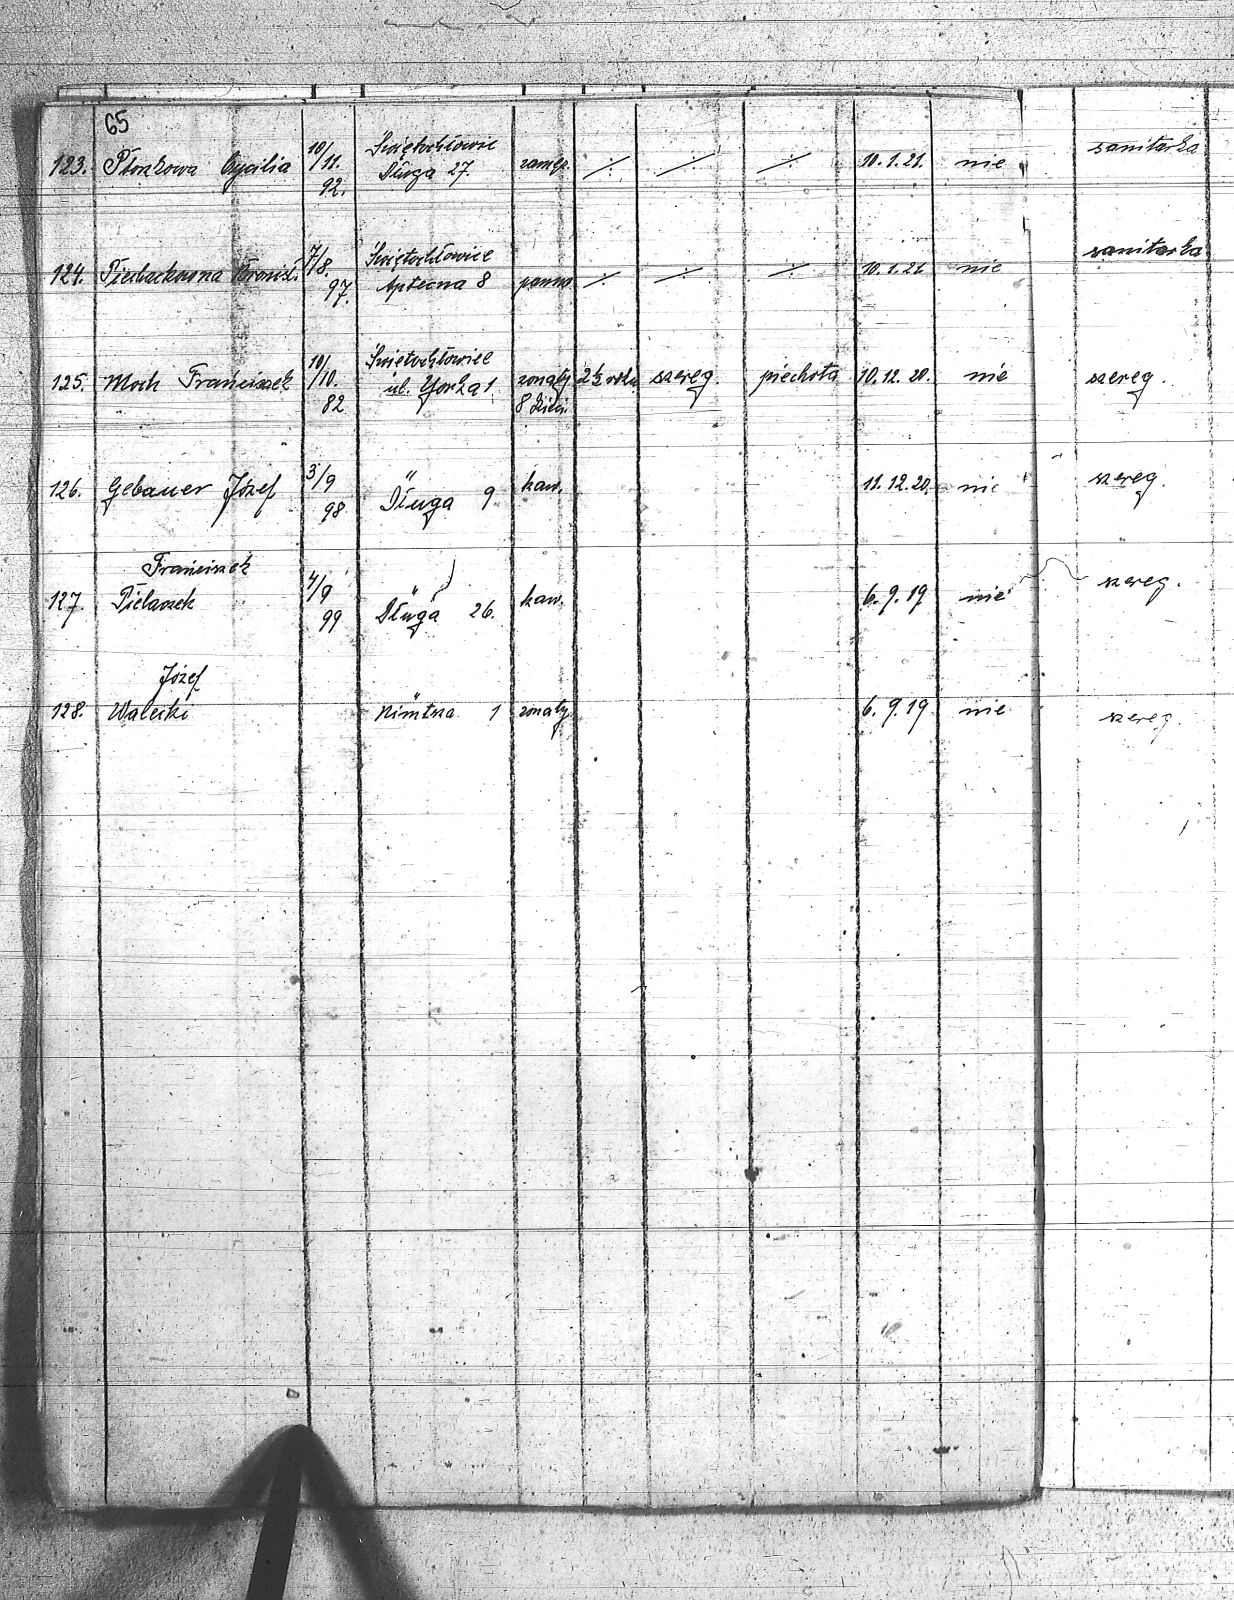 65
123. Płonkowa Cycilia 10/11. 92. Świętochłowic Długa 27. zamęż. ./. ./. ./. 10.1.21. nie sanitarka
124. Bronisł. 7/8. 97. Świętochłowice Apteczna 8 panna ./. ./. ./. 10.1.21. nie sanitarka
125. Moch Franciszek 10/10. 82 Świetochłowice ul. Gorka 1 zonaty 8 dzieci. 2½ roku szereg. piechota 10.12.20. nie szereg.
126. Gebauer Józef 3/9 98 " Długa 9 kaw. 11.12.20. nie szereg.
127. Franciszek Pielaszek 4/9 99 " Długa 26. kaw. 6.9.19 nie szereg.
128. Józef Walecki " 1 zonaty 6.9.19 nie szereg.